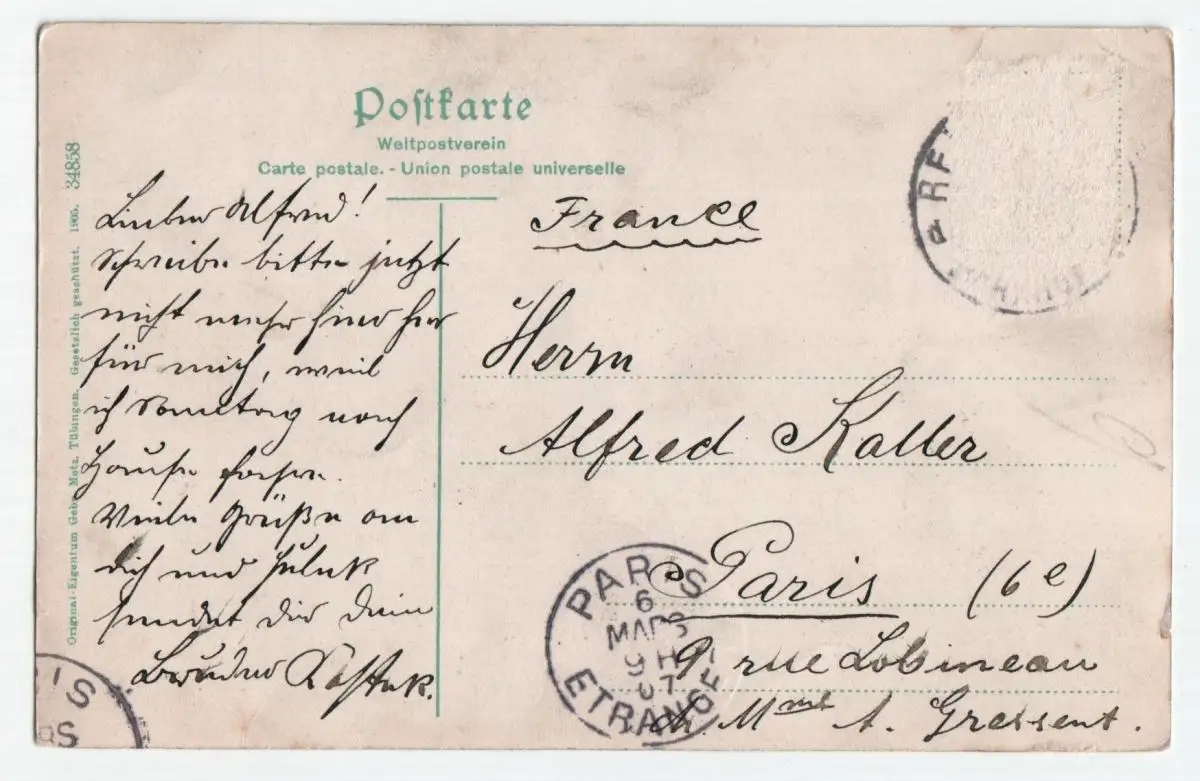 Postkarte
Weltpostverein
Carte postale. - Union postale universelle
Original-Eigentum Gebr. Metz, Tübingen. Gesetzlich geschützt. 1905. 34858
Lieber Alfred!
Schreibe bitte jetzt
nicht mehr hier her
für mich, weil
ich Sonntag nach
Hause fahre.
Viele Grüße an
dich und
sendet dir dein
Bruder
France
Herrn
Alfred Kaller
Paris (6e)
9 rue Lobineau
Mme A. Gressent.
PARIS
6
MARS
9 H
07
ETRANGER